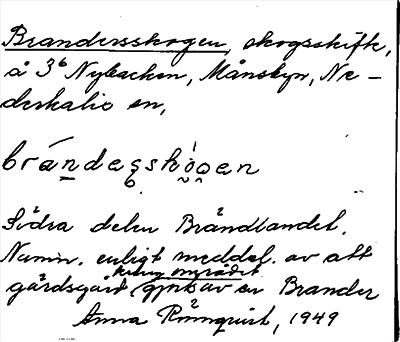 Brandersskogen, skogsskifte,
å 3⁶ Nybacken, Månsbyn, Ne-
derkalix sn,
brándesskò̭gen
Södra delen Brändlandet.
Namn. enligt meddel. av att
gärdsgård kring området gjorts av en Brander
Anna Rönnqvist, 1949